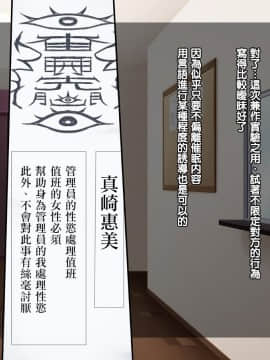 對了…這次兼作實驗之用，試著不限定對方的行為
寫得比較曖昧好了
因為似乎只要不偏離催眠内容
用言語進行某種程度的誘導也是可以的
真崎惠美
管理員的性慾處理值班
值班的女性必須
幫助身為管理員的我處理性慾
此外、不會對此事有絲毫討厭